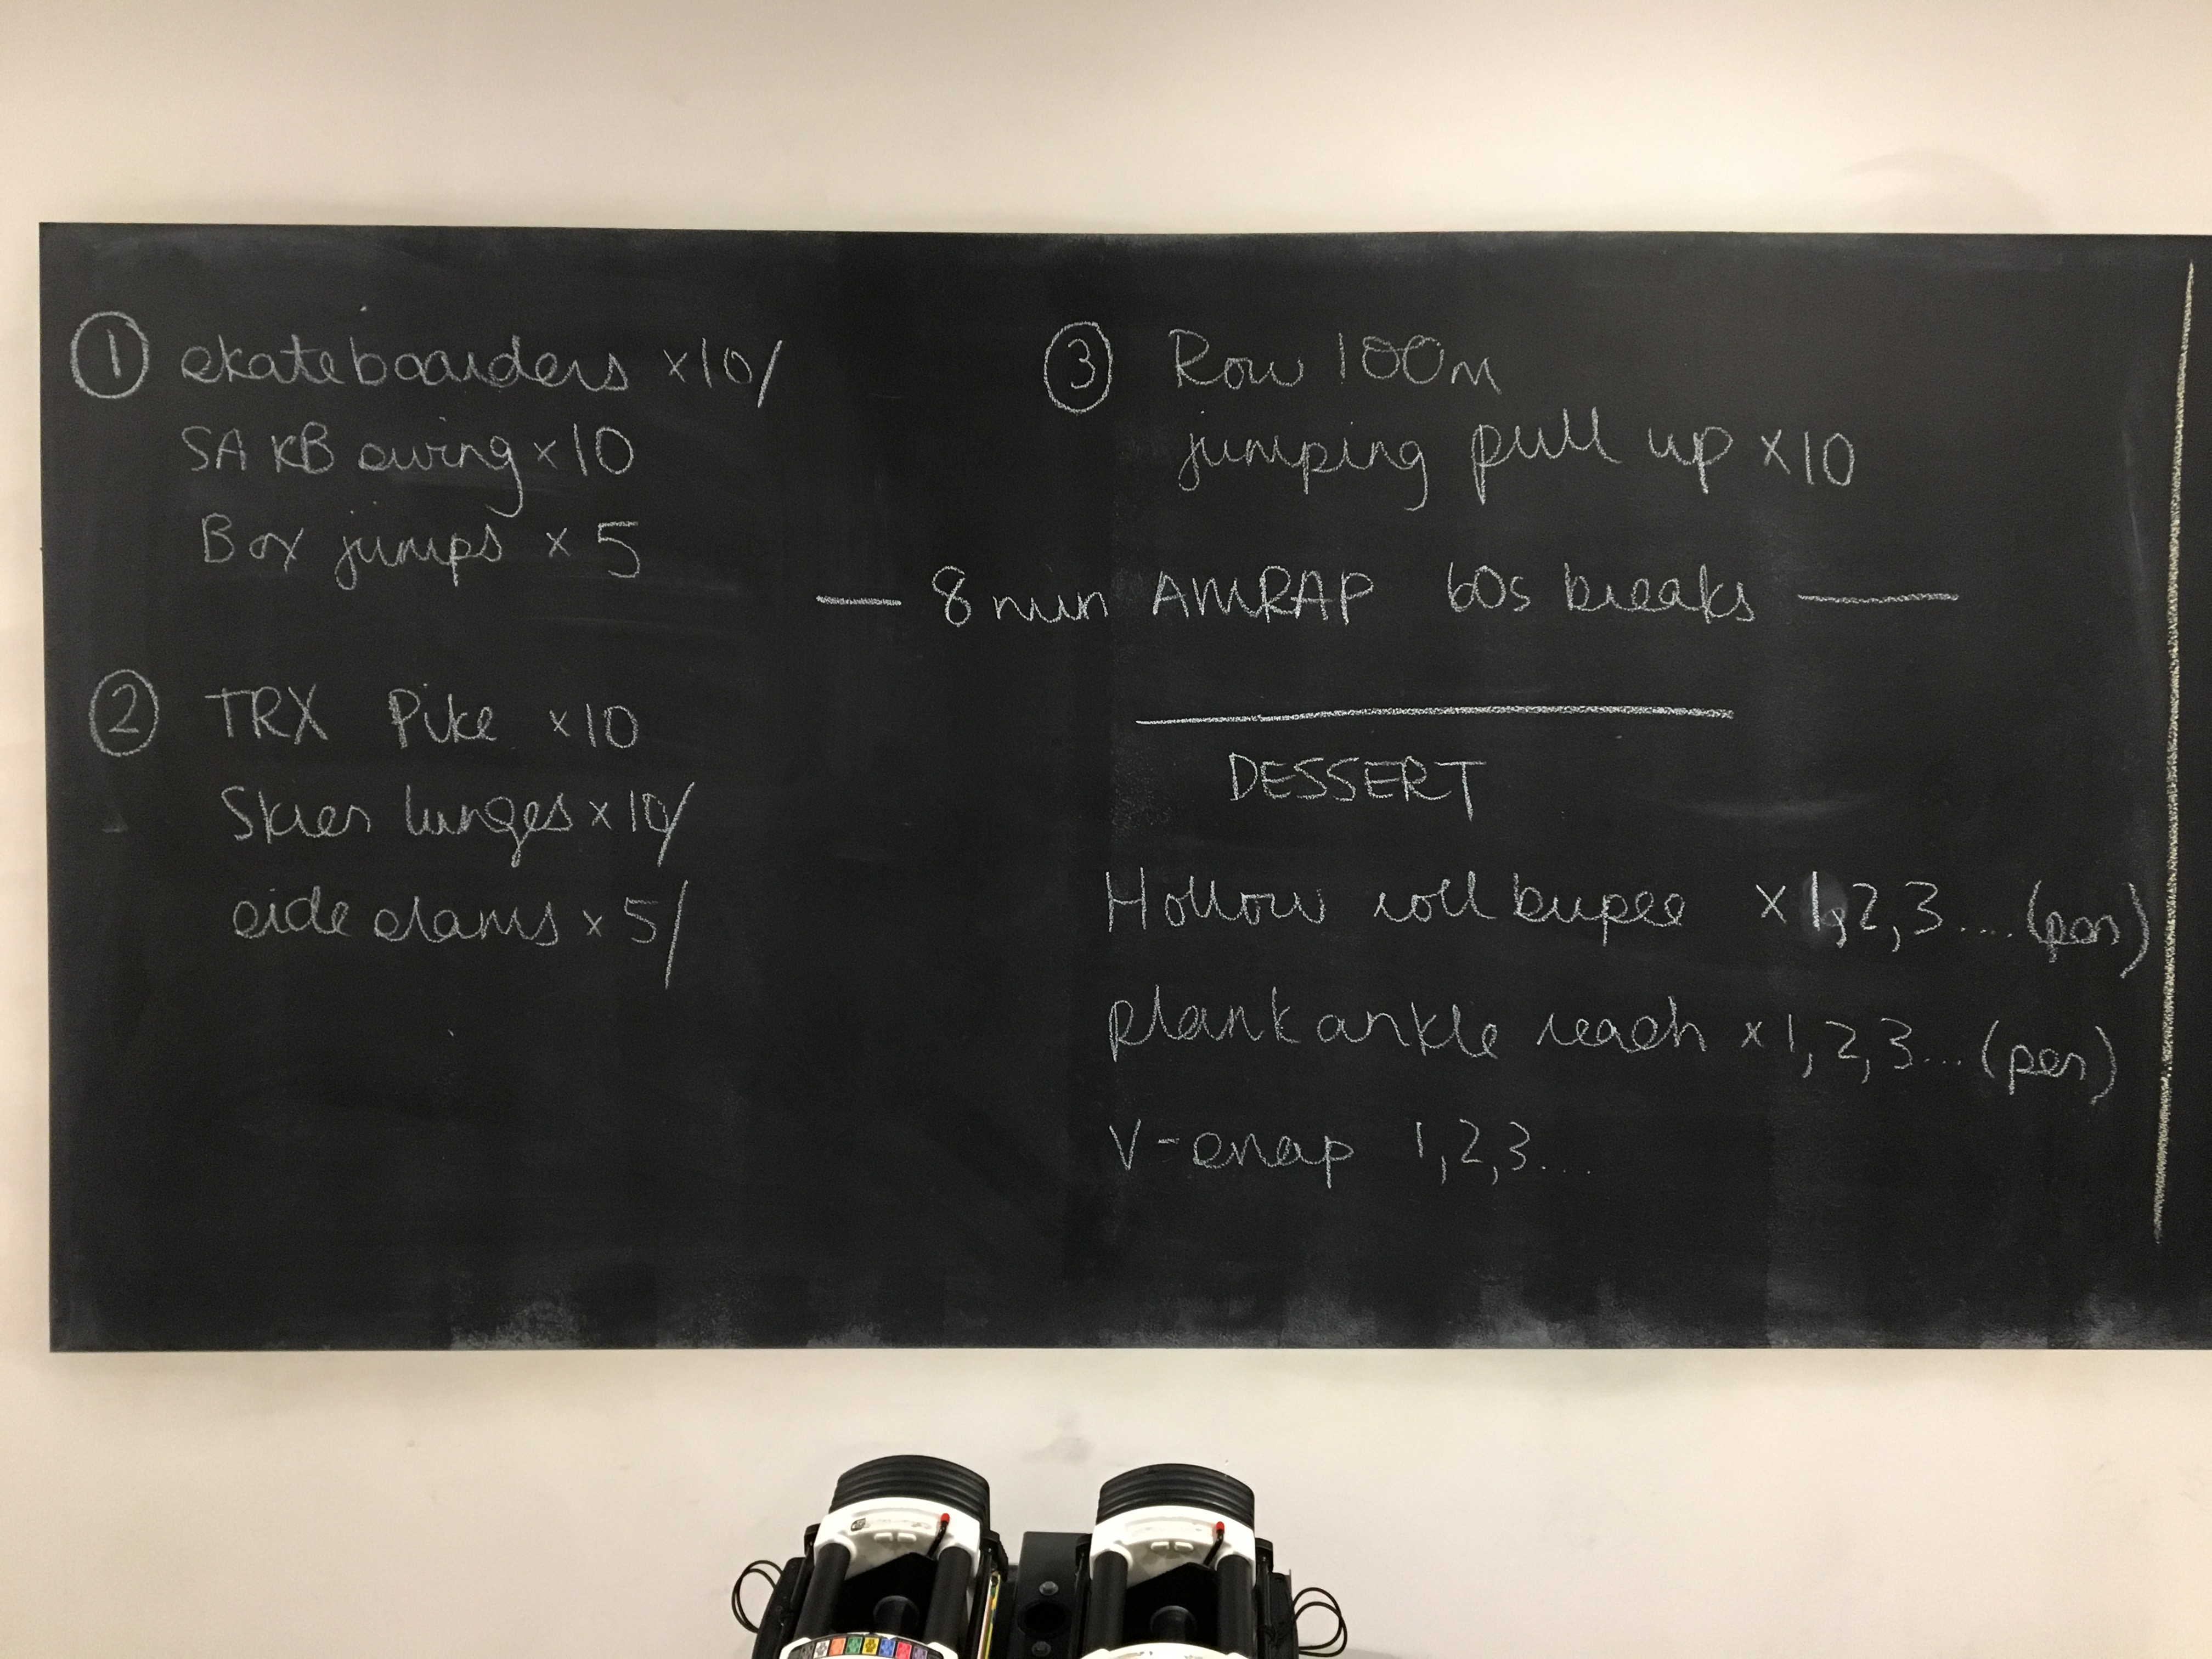 ① skateboarders x10/
SA KB swing x10
Box jumps x 5
② TRX Pike x10
Skier lunges x 10/
side slams x 5/
③ Row 100m
jumping pull up x10
— 8 min AMRAP 60s breaks —
DESSERT
Hollow roll bupee x 1,2,3.... (per)
plank ankle reach x 1,2,3... (per)
V-snap 1,2,3...